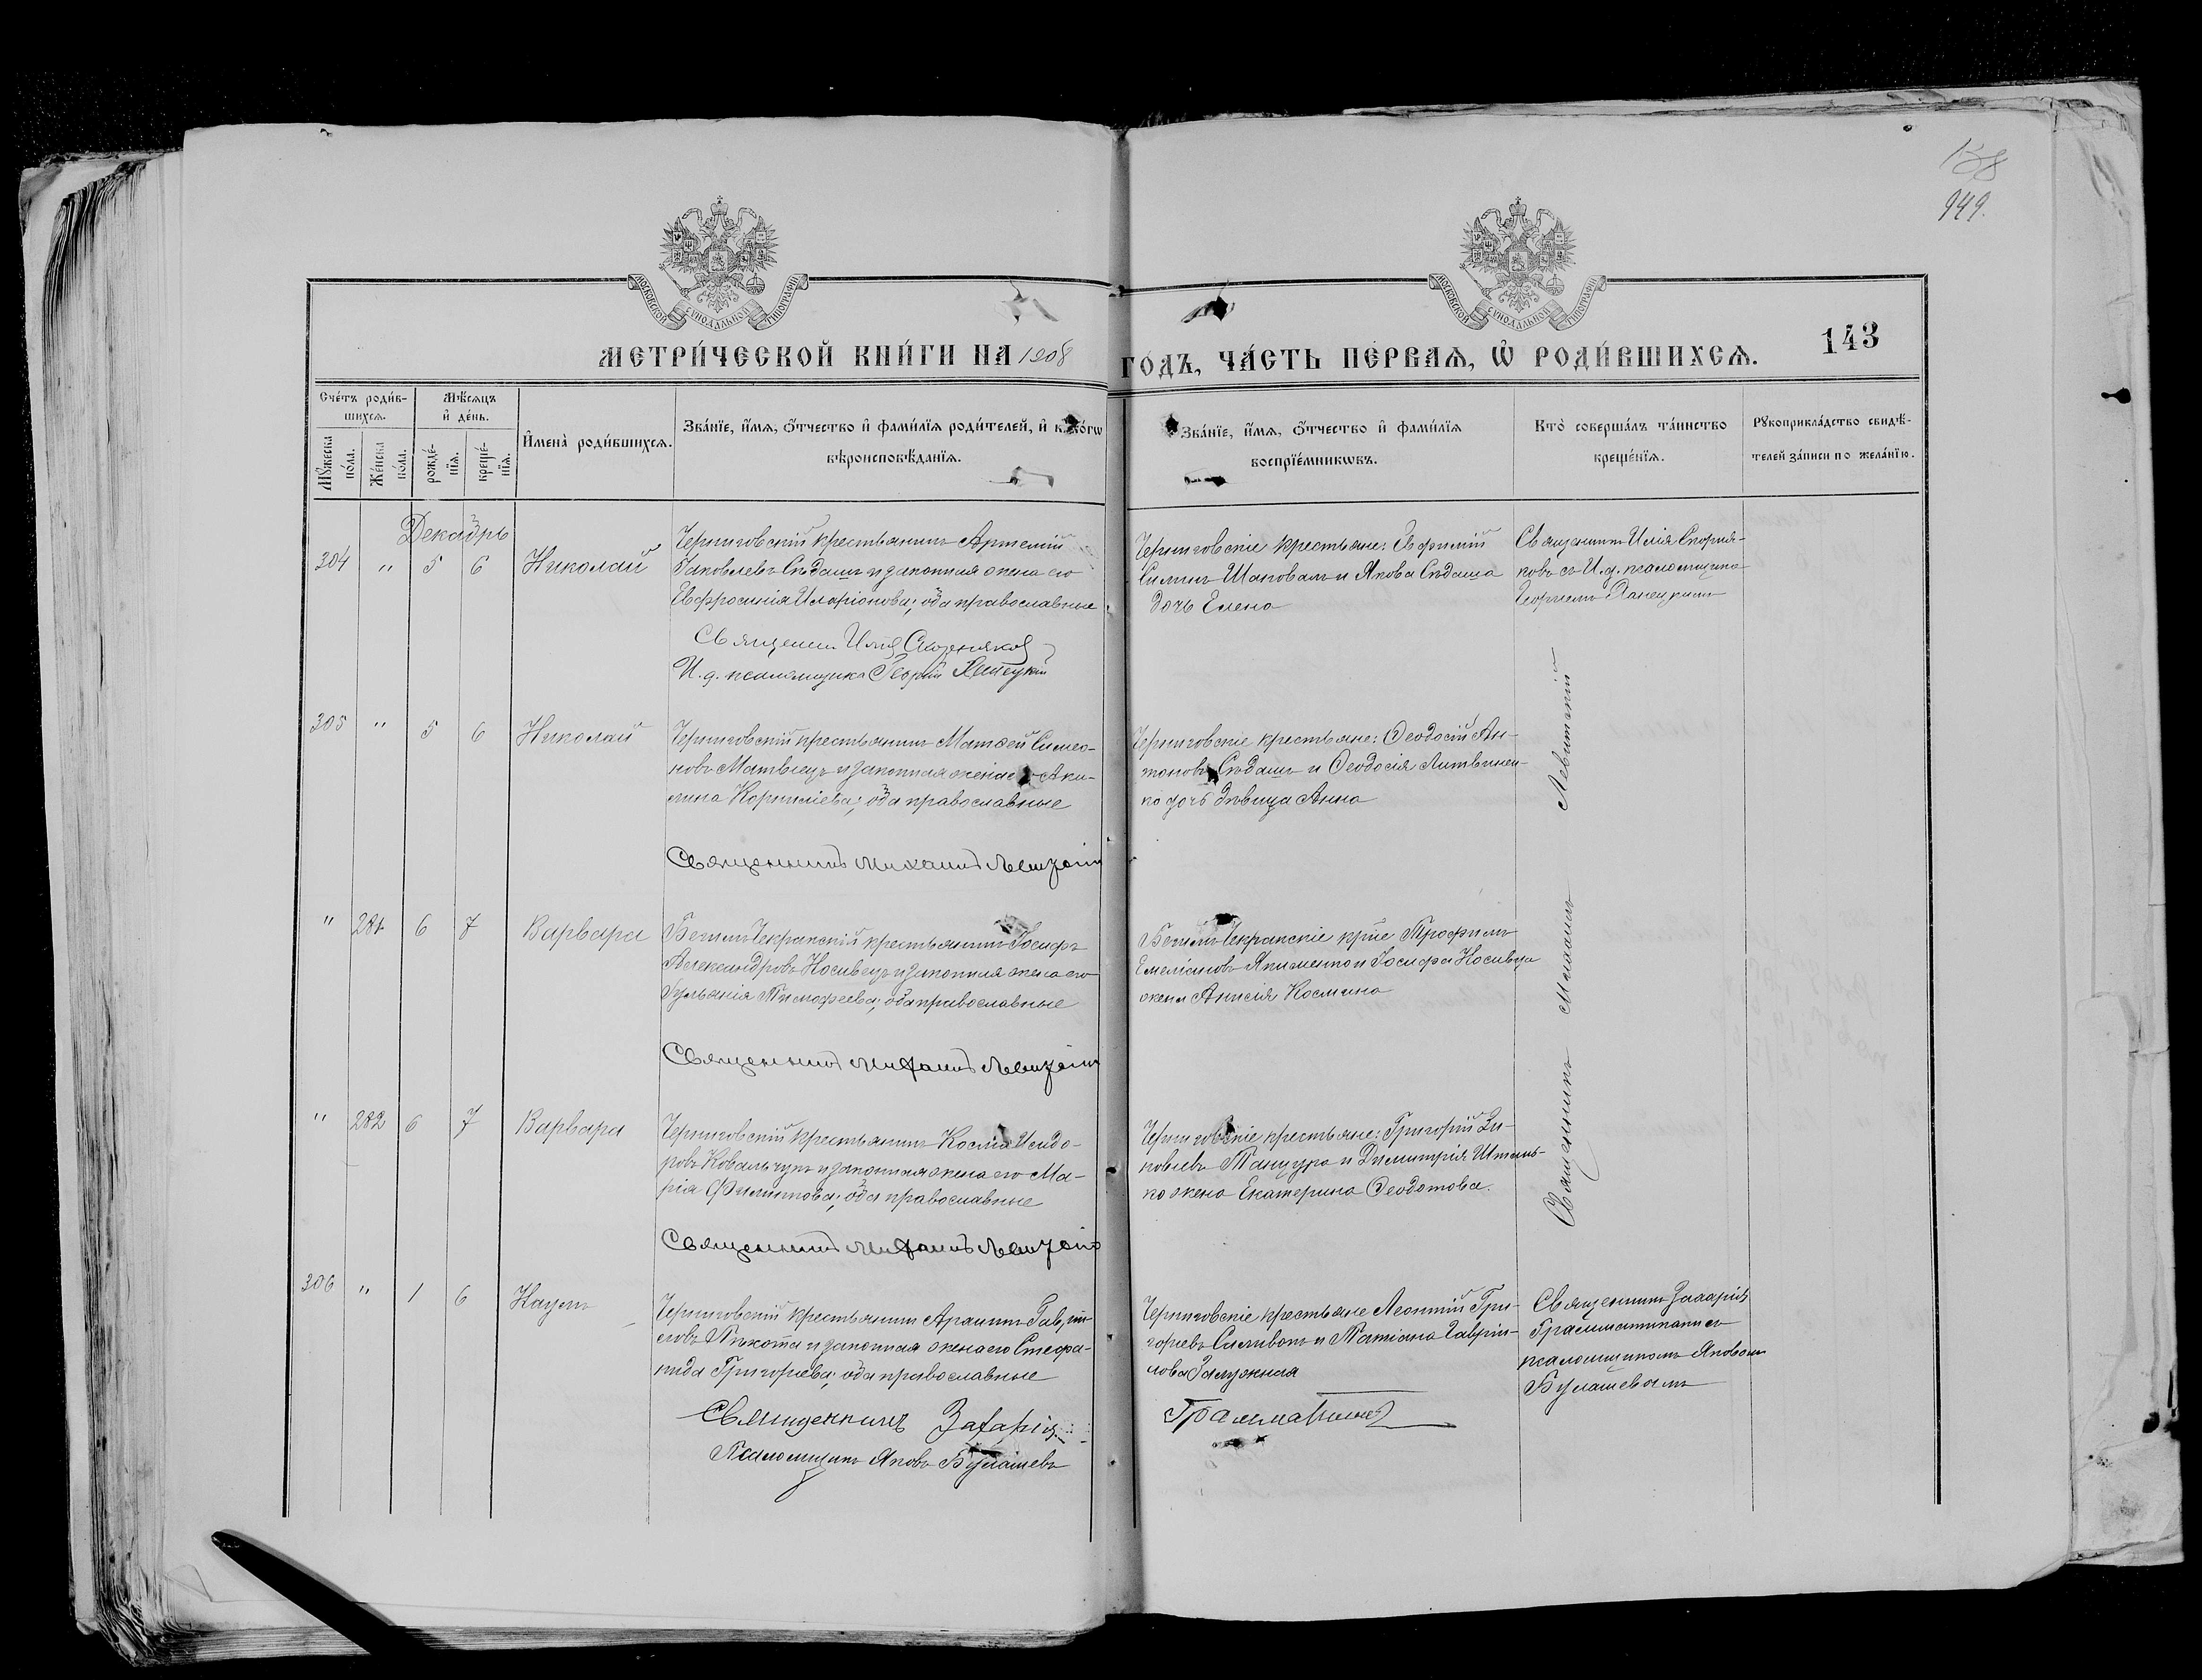 138
949.
МОСКОВСКОЙ СѴНОДАЛЬНОЙ ТИПОГРАФІИ
МОСКОВСКОЙ СѴНОДАЛЬНОЙ ТИПОГРАФІИ
МЕТРИ́ЧЕСКОЙ КНИ́ГИ НА 1908 ГО́ДЪ, ЧА́СТЬ ПЕ́РВАѦ, Ѽ РОДИ́ВШИХСѦ.
143
Сче́тъ роди́в-
шихсѧ.
Мѣ́сѧцъ
и҆ де́нь.
Мꙋ́жеска
по́ла.
Же́нска
по́ла.
рожде́-
нїѧ.
креще́-
нїѧ.
И҆мена̀ роди́вшихсѧ.
Зва́нїе, и҆́мѧ, ѻ҆́тчество и҆ фами́лїѧ роди́телей, и҆ како́гѡ
вѣроисповѣ́данїѧ.
Зва́нїе, и҆́мѧ, ѻ҆́тчество и҆ фами́лїѧ
воспрїе́мникѡвъ.
Кто̀ соверша́лъ та́инство
креще́нїѧ.
Рꙋкоприкла́дство свидѣ́-
телей за́писи по жела́нїю.
Декабрь
304 " 5 6 Николай
Черниговскій крестьянинъ Артемій
Іаковлевъ Сѣдашъ и законная жена его
Евфросинія Иларіонова; оба православные
Священ. Илія Скорняковъ
И. д. псаломщика Георгій Ханецкій
Черниговскіе крестьяне: Евфимій
Силинъ Шаповалъ и Якова Сѣдаша
дочь Елена
Священникъ Илія Скорня-
ковъ съ И. д. псаломщика
Георгіемъ Ханецкимъ
305 " 5 6 Николай
Черниговскій крестьянинъ Матѳей Симео-
новъ Матвіецъ и законная жена его Аки-
лина Корниліева; оба православные
Священникъ Михаилъ Левитскій
Черниговскіе крестьяне: Ѳеодосій Ан-
тоновъ Сѣдашъ и Ѳеодосія Литвинен-
ко дочь дѣвица Анна
Священникъ Михаилъ Левитскій
" 281 6 7 Варвара
Бегимъ Чекракскій крестьянинъ Іосифъ
Александровъ Носивецъ и законная жена его
Іуліанія Тимофеева; оба православные
Священникъ Михаилъ Левитскій
Бегимъ Чекракскіе кр̃не Трофимъ
Емеліановъ Якименко и Іосифа Носивца
жена Анисія Космина
" 282 6 7 Варвара
Черниговскій крестьянинъ Косма Исидо-
ровъ Ковальчукъ и законная жена его Ма-
рія Филиппова; оба православные
Священникъ Михаилъ Левитскій
Черниговскіе крестьяне: Григорій Зи-
новіевъ Танцура и Димитрія
жена Екатерина Ѳеодотова.
306 " 1 6 Наумъ
Черниговскій крестьянинъ Гаврiи-
ловъ и законная жена его Стефа-
нида Григориева; оба православные
Священникъ Захарія
Псаломщикъ Яковъ Булашевъ
Черниговскіе крестьяне Леонтій Гри-
горьевъ Саливонъ и Татіана Гавріи-
лова Залужная
Грамматикатъ
Священникъ Захарія
Грамматикатъ съ
псаломщикомъ Яковомъ
Булашевымъ